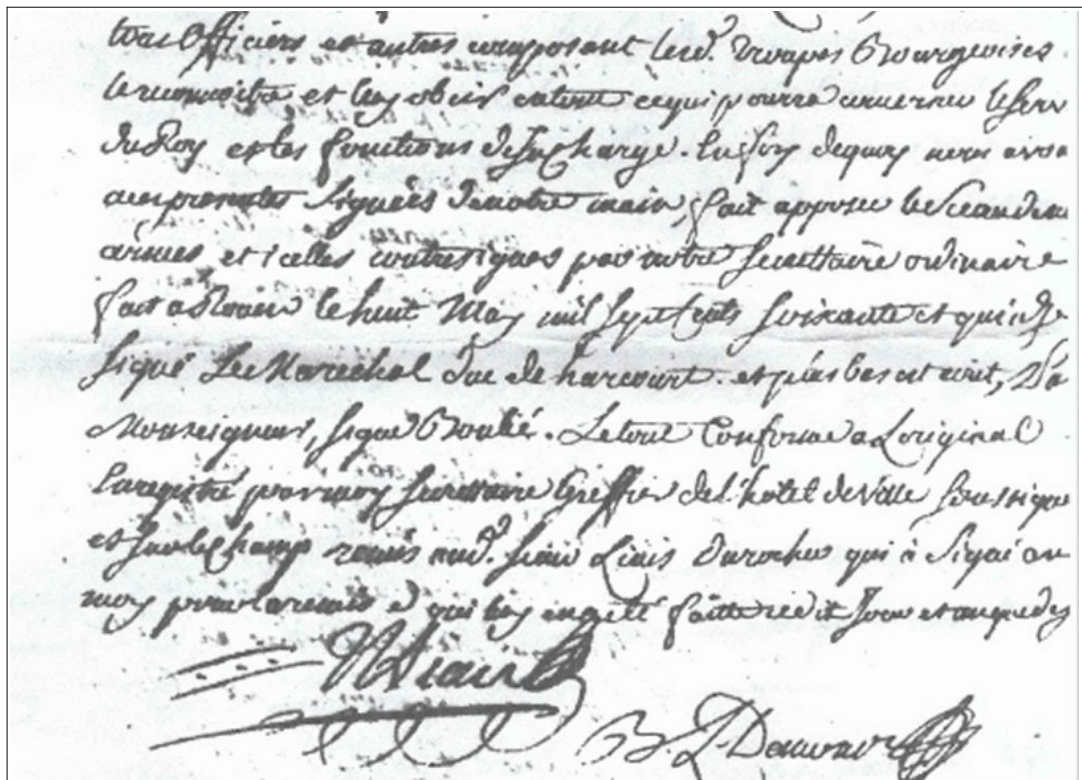 tous Officiers et autres composant lesd. troupes Bourgeoises
le reconnoitre et luy obeir en tout ce qui pourra concerner le serv
du Roy et les fonctions de sa Charge. En foy de quoy nous avon
ces presentes Signées de notre main, fait apposer le Sceau de nos
armes et icelles contresignes par notre Secrettaire ordinaire
fait a Rouen le huit May mil sept cents soixante et quinze
signé Le Marechal Duc de harcourt. et plus bas est ecrit, Pa
Monseigneur, signé Boulié. Le tout Conforme a L'original
Enregistré par moy Secrettaire Greffier de l'hotel de Ville soussigne
et sur le Champ remis aud. sieur Liais Durocher qui à Signé av
moy pour la remise qui luy en a eté faitte ledit Jour et an que des
Liais